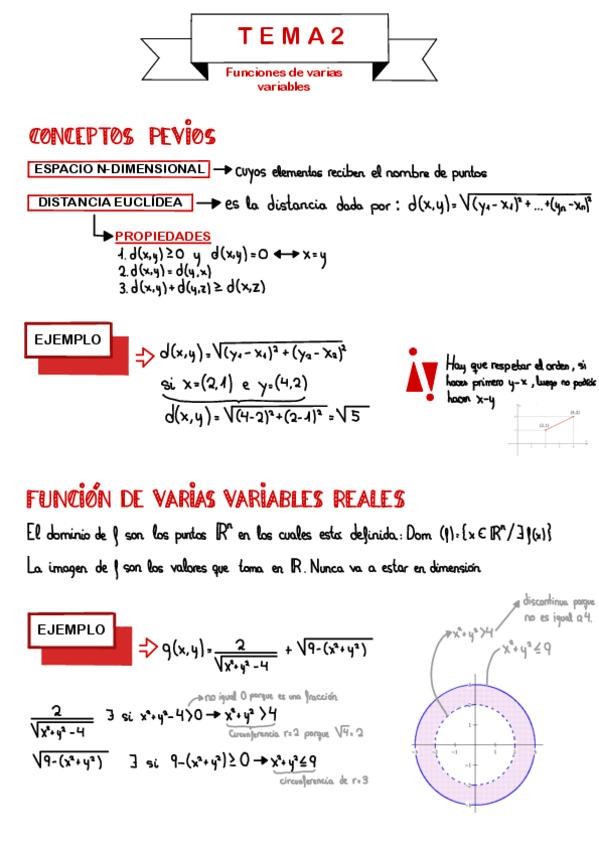 TEMA 2
Funciones de varias
variables
CONCEPTOS PEVIOS
ESPACIO N-DIMENSIONAL → cuyos elementos reciben el nombre de puntos
DISTANCIA EUCLÍDEA → es la distancia dada por: d(x,y)=√(y₁-x₁)²+...+(yₙ-xₙ)²
PROPIEDADES
1. d(x,y)≥0 y d(x,y)=0 ↔ x=y
2. d(x,y)=d(y,x)
3. d(x,y)+d(y,z)≥d(x,z)
EJEMPLO
d(x,y)=√(y₁-x₁)²+(y₂-x₂)²
si x=(2,1) e y=(4,2)
d(x,y)=√(4-2)²+(2-1)²=√5
¡!
Hay que respetar el orden, si
hacen primero y-x, luego no podéis
hacer x-y
(2,1)
(4,2)
FUNCIÓN DE VARIAS VARIABLES REALES
El dominio de f son los puntos ℝⁿ en los cuales esta definida: Dom (f)={x∈ℝⁿ/∃f(x)}
La imagen de f son los valores que toma en ℝ. Nunca va a estar en dimensión
EJEMPLO
g(x,y)=2/√x²+y²-4 + √9-(x²+y²)
no igual 0 porque es una fracción
2/√x²+y²-4 ∃ si x²+y²-4>0 → x²+y²>4
Circunferencia r=2 porque √4=2
√9-(x²+y²) ∃ si 9-(x²+y²)≥0 → x²+y²≤9
circunferencia de r=3
discontinua porque
no es igual a 4.
x²+y²>4
x²+y²≤9